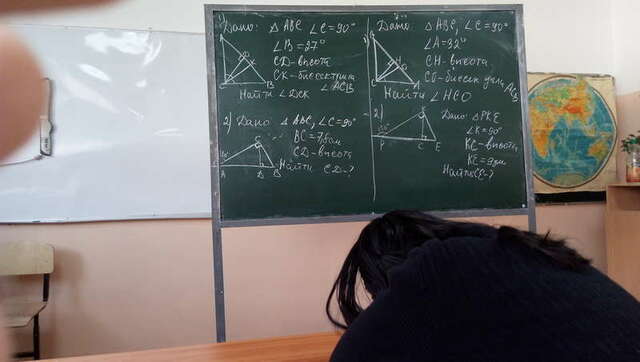 1)
Дано: △ ABC ∠C=90°
∠B=27°
CD-высота
CK-биссектриса
∠ACB
Найти ∠DCK
2) Дано △ ABC, ∠C=90°
BC=
CD-высота
Найти CD-?
A D B
Дано △ ABC, ∠C=90°
∠A=32°
CH-высота
CO-биссек угла ACB
Найти ∠HCO
2)
Дано △PKE
∠K=90°
KC-высота
KE=9см
Найти CE-?
P C E